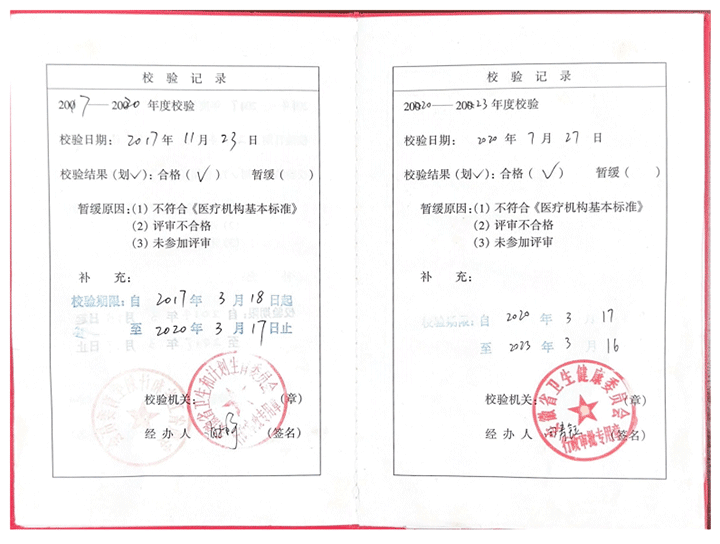 校验记录
2017—2020年度校验
校验日期：2017年11月23日
校验结果(划✓)：合格(✓) 暂缓( )
暂缓原因：(1) 不符合《医疗机构基本标准》
(2) 评审不合格
(3) 未参加评审
补 充：
校验期限：自 2017年 3月18日起
至 2020年 3月17日止
校验机关： (章)
经 办 人 (签名)
省卫生和计划生育委员会
审批专用章
校验记录
2020—2023年度校验
校验日期： 2020年 7月 27日
校验结果(划✓)：合格(✓) 暂缓( )
暂缓原因：(1) 不符合《医疗机构基本标准》
(2) 评审不合格
(3) 未参加评审
补 充：
校验期限：自 2020 年 3月 17
至 2023 年 3月 16
校验机关： (章)
经 办 人 (签名)
安徽省卫生健康委员会
行政审批专用章